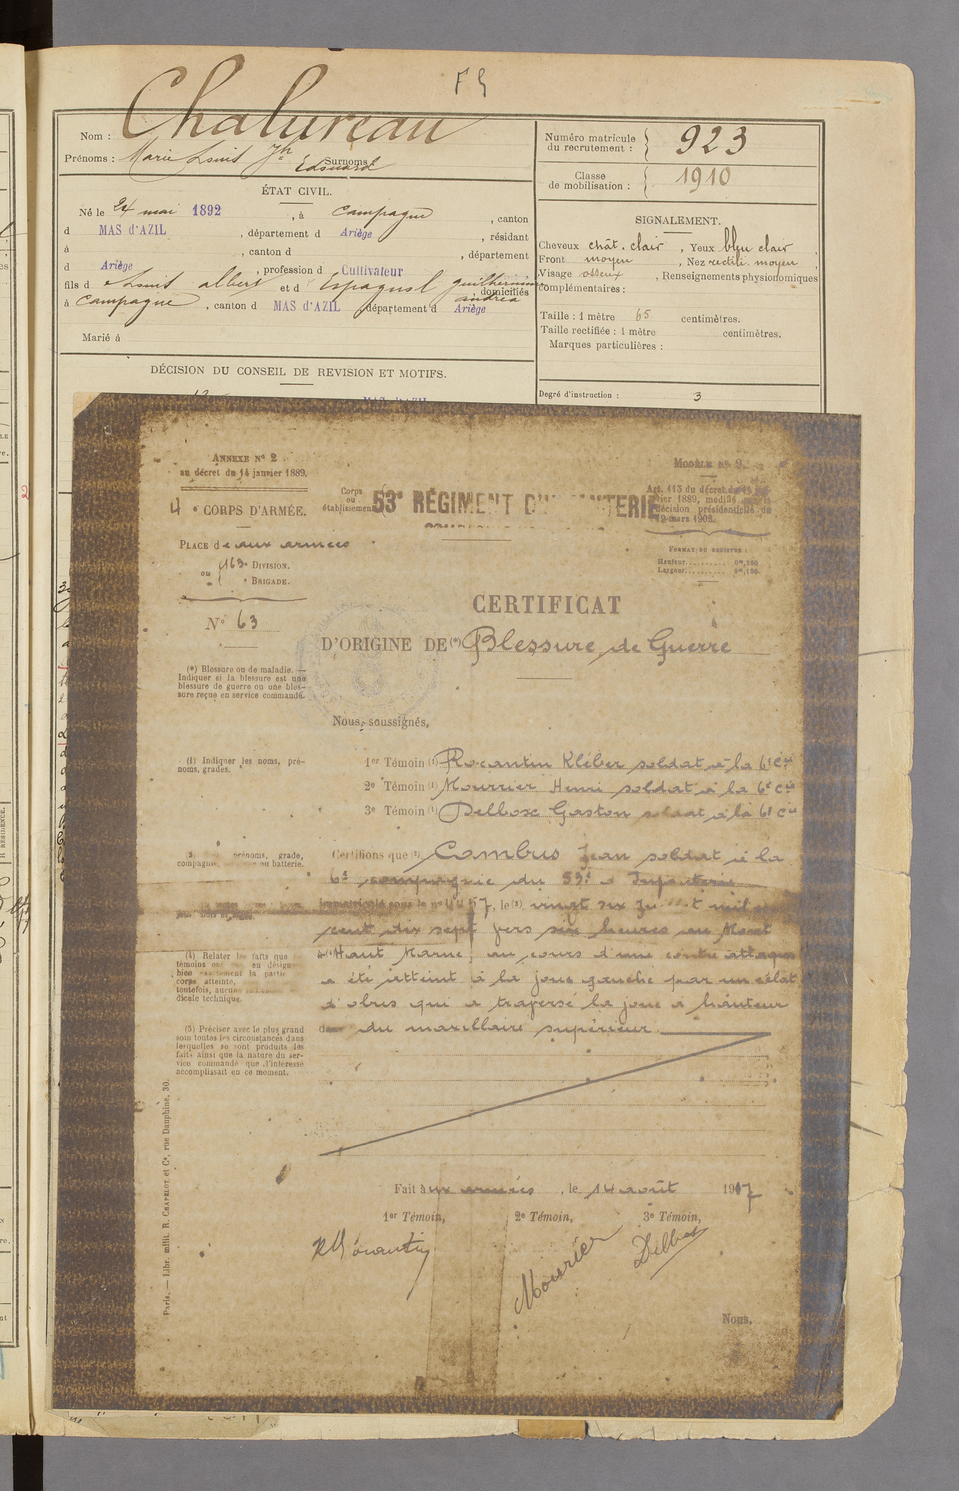 F 9
Nom : Chalureau
Prénoms : Marie Louis Jph Edouard Surnoms
Numéro matricule du recrutement : 923
Classe de mobilisation : 1910
ÉTAT CIVIL.
Né le 24 mai 1892, à Campagne, canton
d MAS d'AZIL, département d Ariège, résidant
à , canton d , département
d Ariège, profession d Cultivateur
fils d Louis albert et d Espagnol guilhermine andréa domiciliés
à Campagne, canton d MAS d'AZIL, département d Ariège
Marié à
SIGNALEMENT.
Cheveux chât. clair, Yeux bleu clair
Front moyen, Nez rectili. moyen
Visage osseux, Renseignements physionomiques
complémentaires :
Taille : 1 mètre 65 centimètres.
Taille rectifiée : 1 mètre centimètres.
Marques particulières :
DÉCISION DU CONSEIL DE REVISION ET MOTIFS.
Degré d'instruction : 3
ANNEXE N° 2
au décret du 14 janvier 1889.
4e CORPS D'ARMÉE.
Corps ou établissement
53e RÉGIMENT D'INFANTERIE
MODÈLE N° 9.
Art. 113 du décret du
1889, modifié
décision présidentielle du
mars 1902.
FORMAT DU REGISTRE :
Hauteur
Largeur
PLACE de aux armées
ou
163e DIVISION.
e BRIGADE.
N° 63
CERTIFICAT
D'ORIGINE DE (*) Blessure de Guerre
(*) Blessure ou de maladie. —
Indiquer si la blessure est une
blessure de guerre ou une bles-
sure reçue en service commandé.
Nous, soussignés,
(1) Indiquer les noms, pré-
noms, grades.
1er Témoin (1) Rocantin Kléber soldat à la 6e Cie
2e Témoin (1) Mourrier Henri soldat à la 6e Cie
3e Témoin (1) Delbox Gaston soldat à la 6e Cie
prénoms, grade,
compagnie ou batterie.
Certifions que Combus Jean soldat à la
6e compagnie du 53e d'Infanterie
immatriculé sous le n° 7, le (3) vingt six
cent dix sept vers six heures au Mont
Haut Marne, au cours d'une contre attaque
a été atteint à la joue gauche par un éclat
d'obus qui a traversé la joue à hauteur
du maxillaire supérieur
(4) Relater les faits que
témoins
corps atteinte,
toutefois, aucun
dicale technique.
(5) Préciser avec le plus grand
soin toutes les circonstances dans
lesquelles se sont produits les
faits ainsi que la nature du ser-
vice commandé que l'intéressé
accomplissait en ce moment.
Paris. — Libr. milit. R. CHAPELOT et Ce, rue Dauphine, 30.
Fait à aux armées, le 14 août 1917
1er Témoin, 2e Témoin, 3e Témoin,
Mourier
Delbox
Nous,